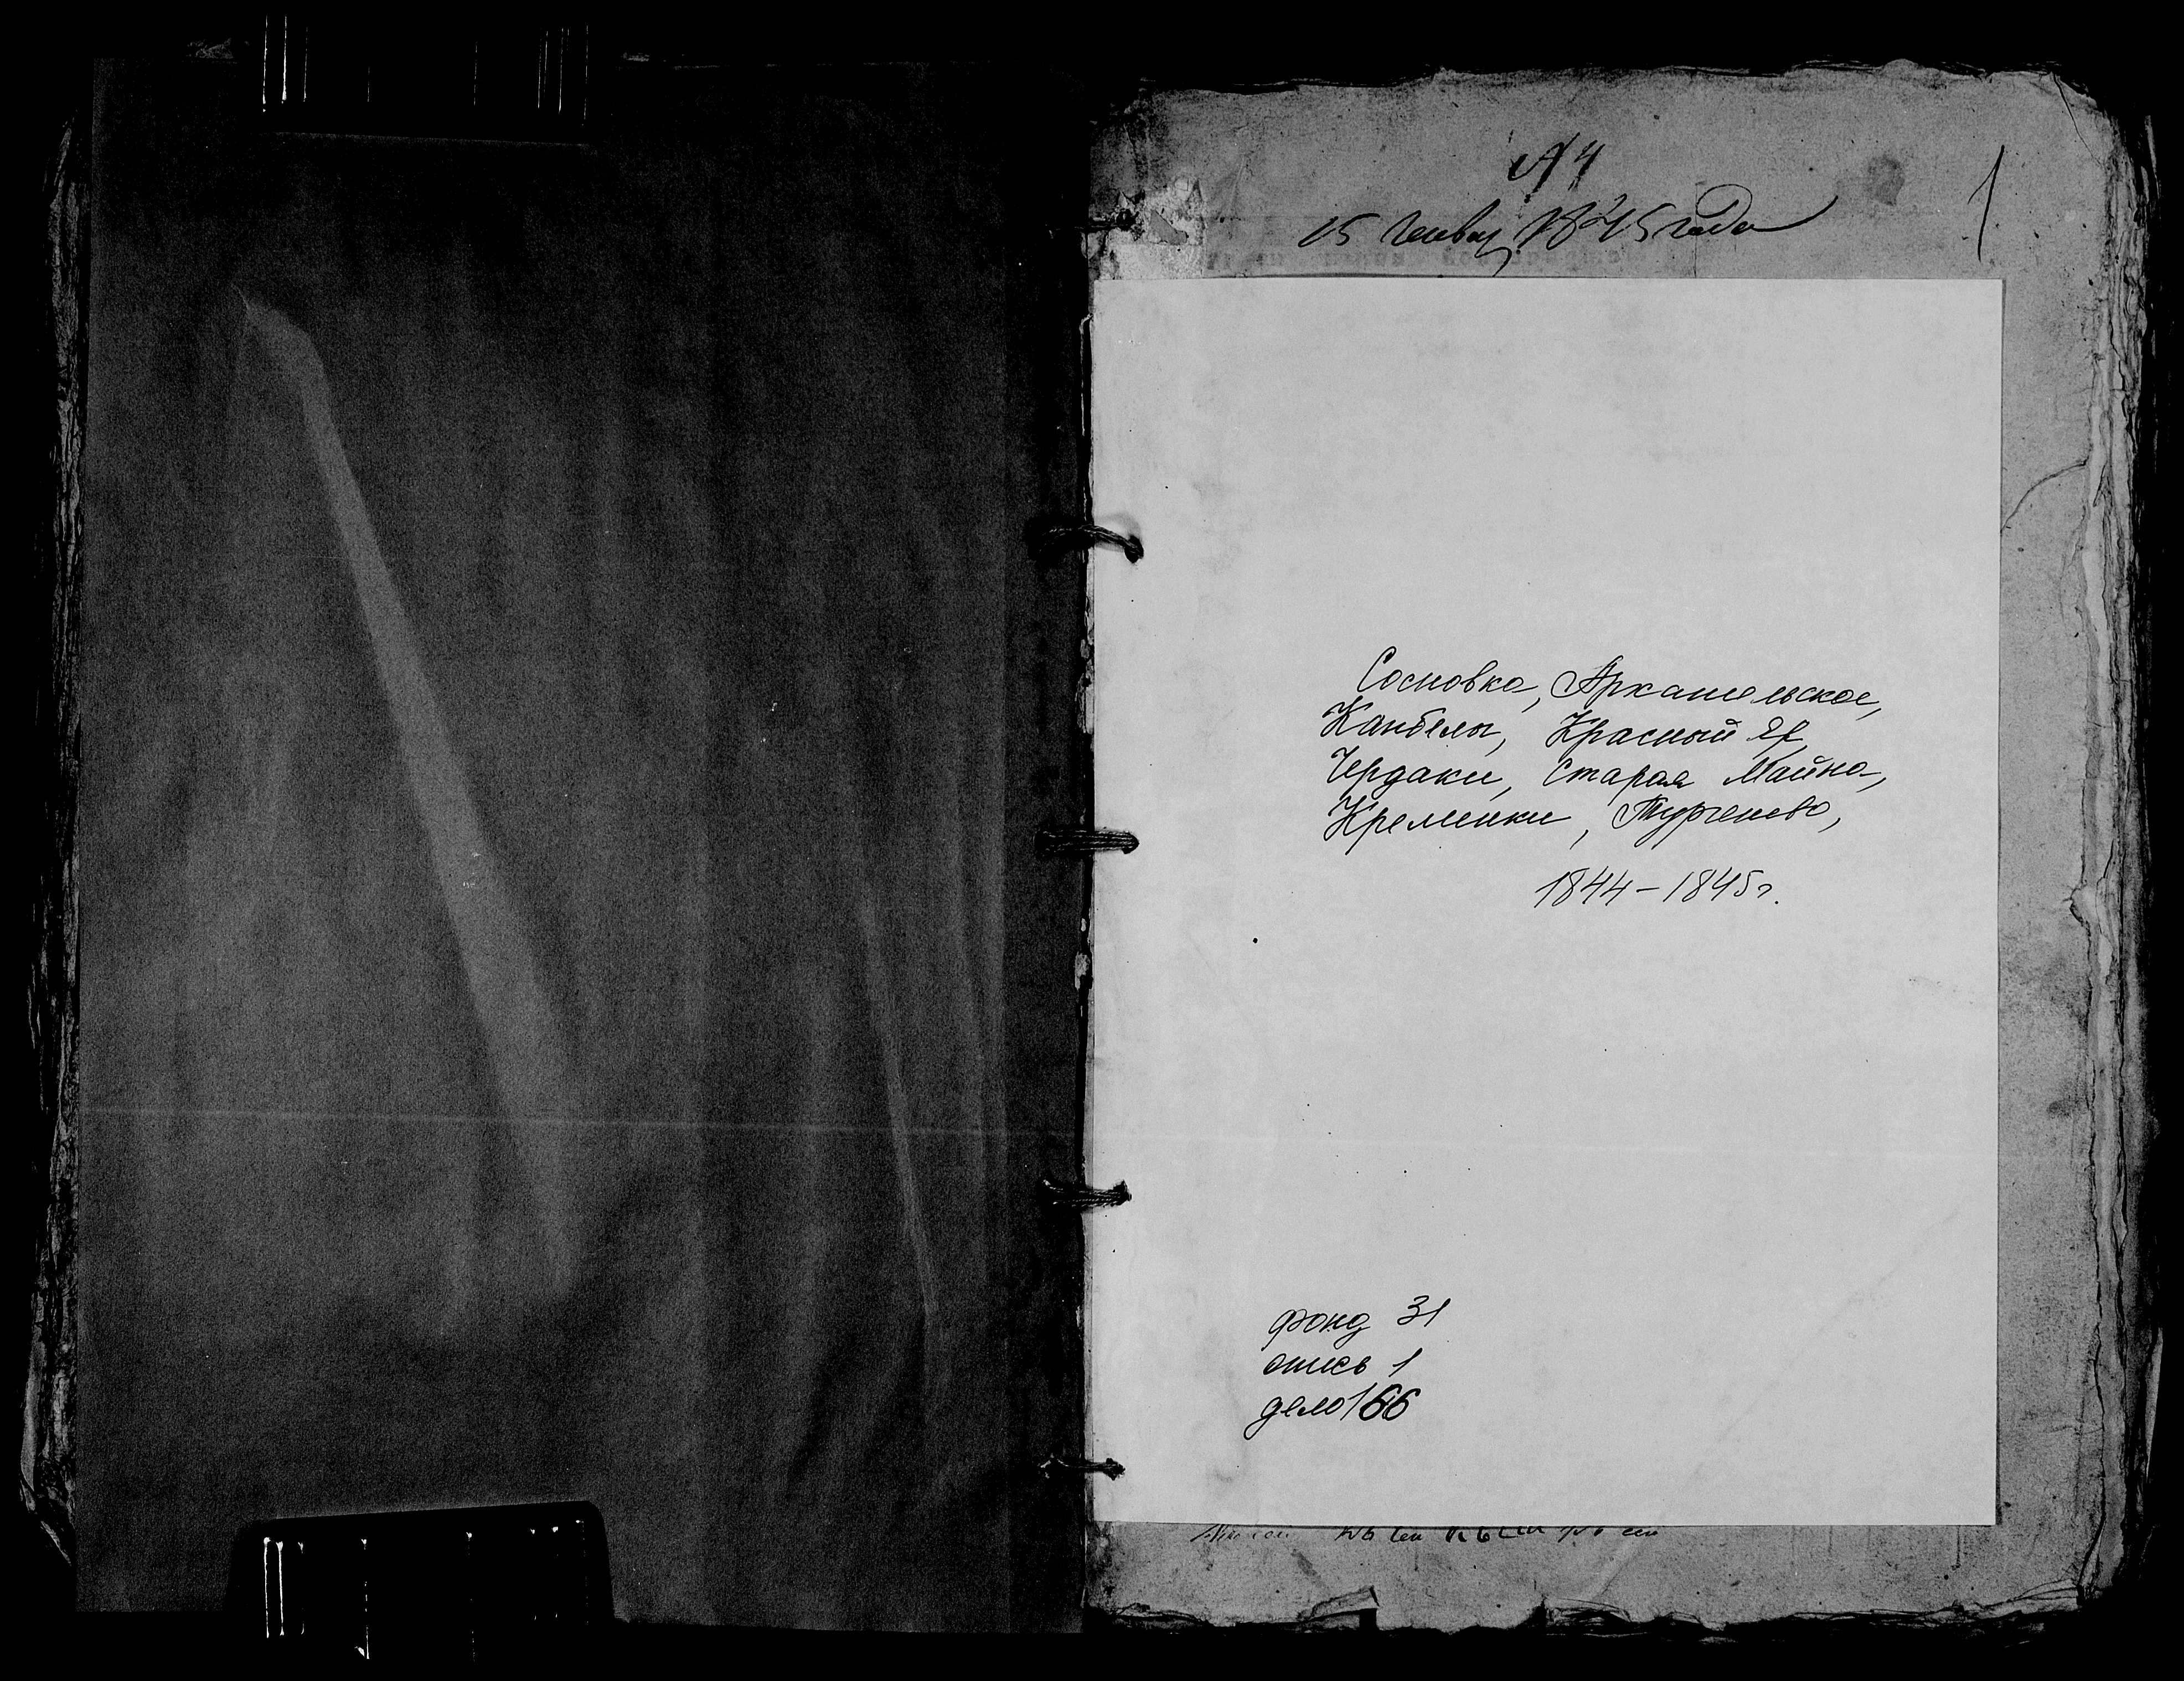 № 4
1
15 Генвар 1845 года
Сосновка, Архангельское,
Канбелы, Красный Яр,
Чердаки, Старая Майна,
Кременки, Тургенево,
1844 – 1845 г.
фонд 31
опись 1
дело 166